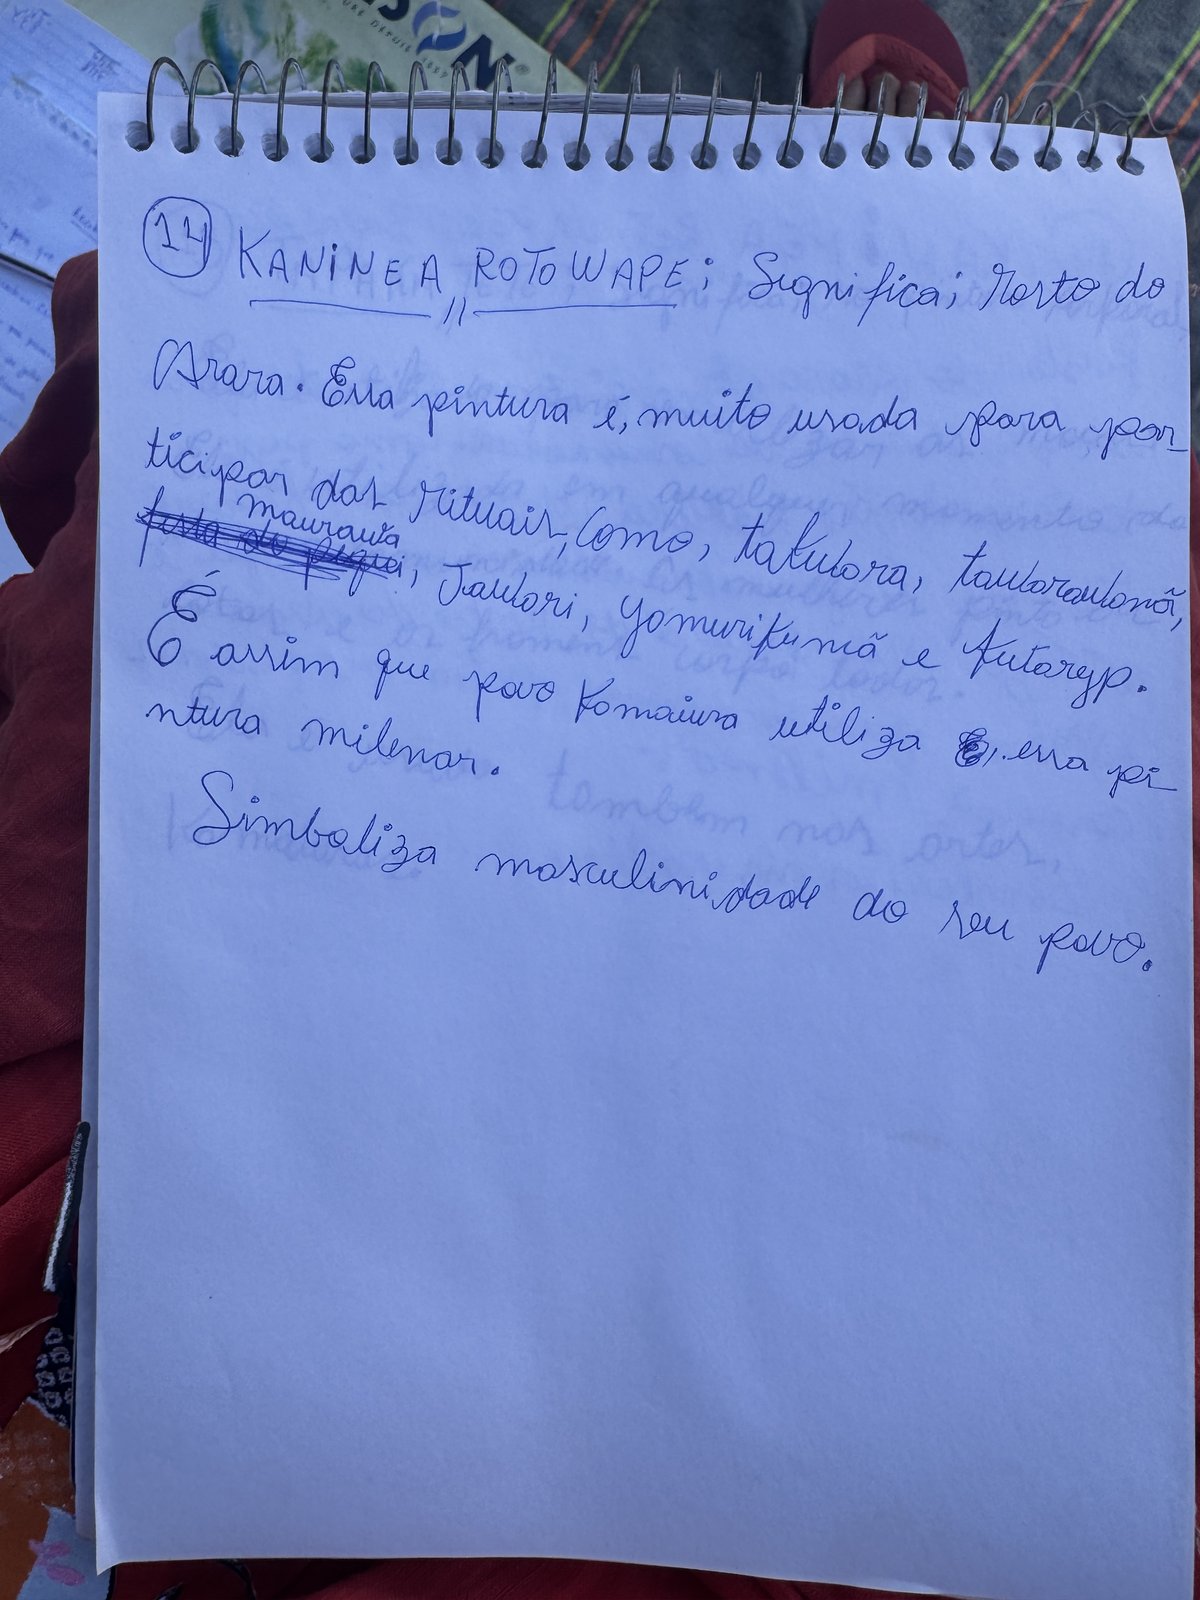 14 KANINEA ROTOWAPE; Significa; Rosto do
Arara. Essa pintura é, muito usada para par-
ticipar dos rituais, como, takuara,
maurawa
festa do pequi, Jawari, yamurikumã e kutaryp.
É assim que povo Kamaiura utiliza essa pi-
ntura milenar.
Simboliza masculinidade do seu povo.